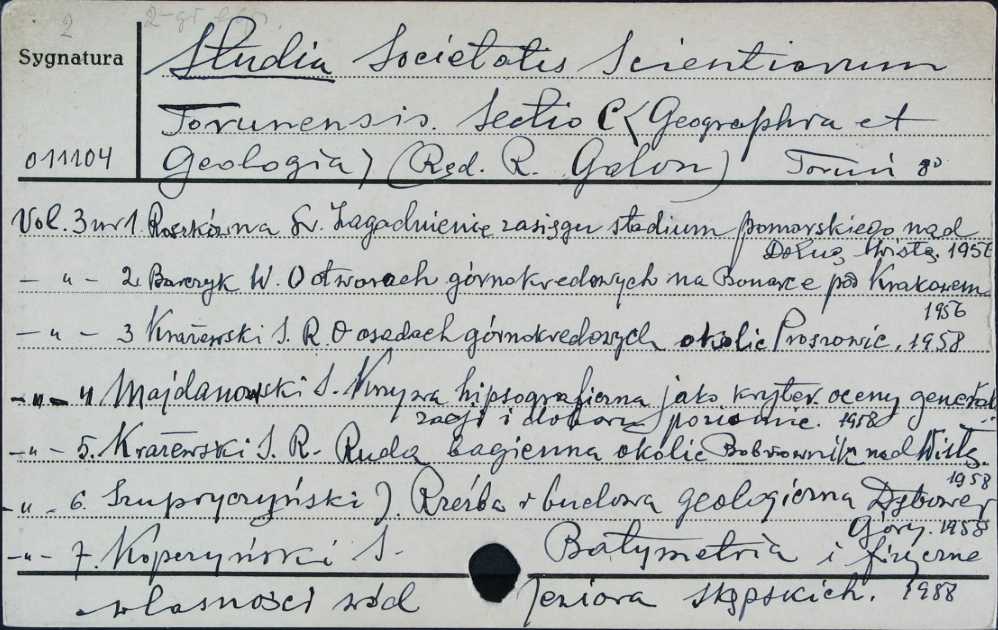 2
Sygnatura
Studia Societatis Scientiarum
Torunensis. Sectio C (Geographia et
011104
Geologia) (Red. R. Galon) Toruń 8°
Vol. 3 nr 1. Roszkówna L. Zagadnienie zasięgu stadium pomorskiego nad
Dolną Wisłą. 1956
- „ - 2. Barczyk W. O utworach górnokredowych na Bonarce pod Krakowem
1956
- „ - 3 Krażewski S. R. O osadach górnokredowych okolic Proszowic. 1958
- „ - 4 Majdanowski S. Krzywa hipsograficzna jako kryter. oceny general.
zacji i doboru poziomic. 1958
- „ - 5. Krażewski S. R. Ruda bagienna okolic Bobrownik nad Wisłą.
1958
- „ - 6. Szupryczyński J. Rzeźba i budowa geologiczna Dębowej
Góry. 1958
- „ - 7. Koperzyński S. Batymetria i fizyczne
własności wód Jeziora skępskich. 1958